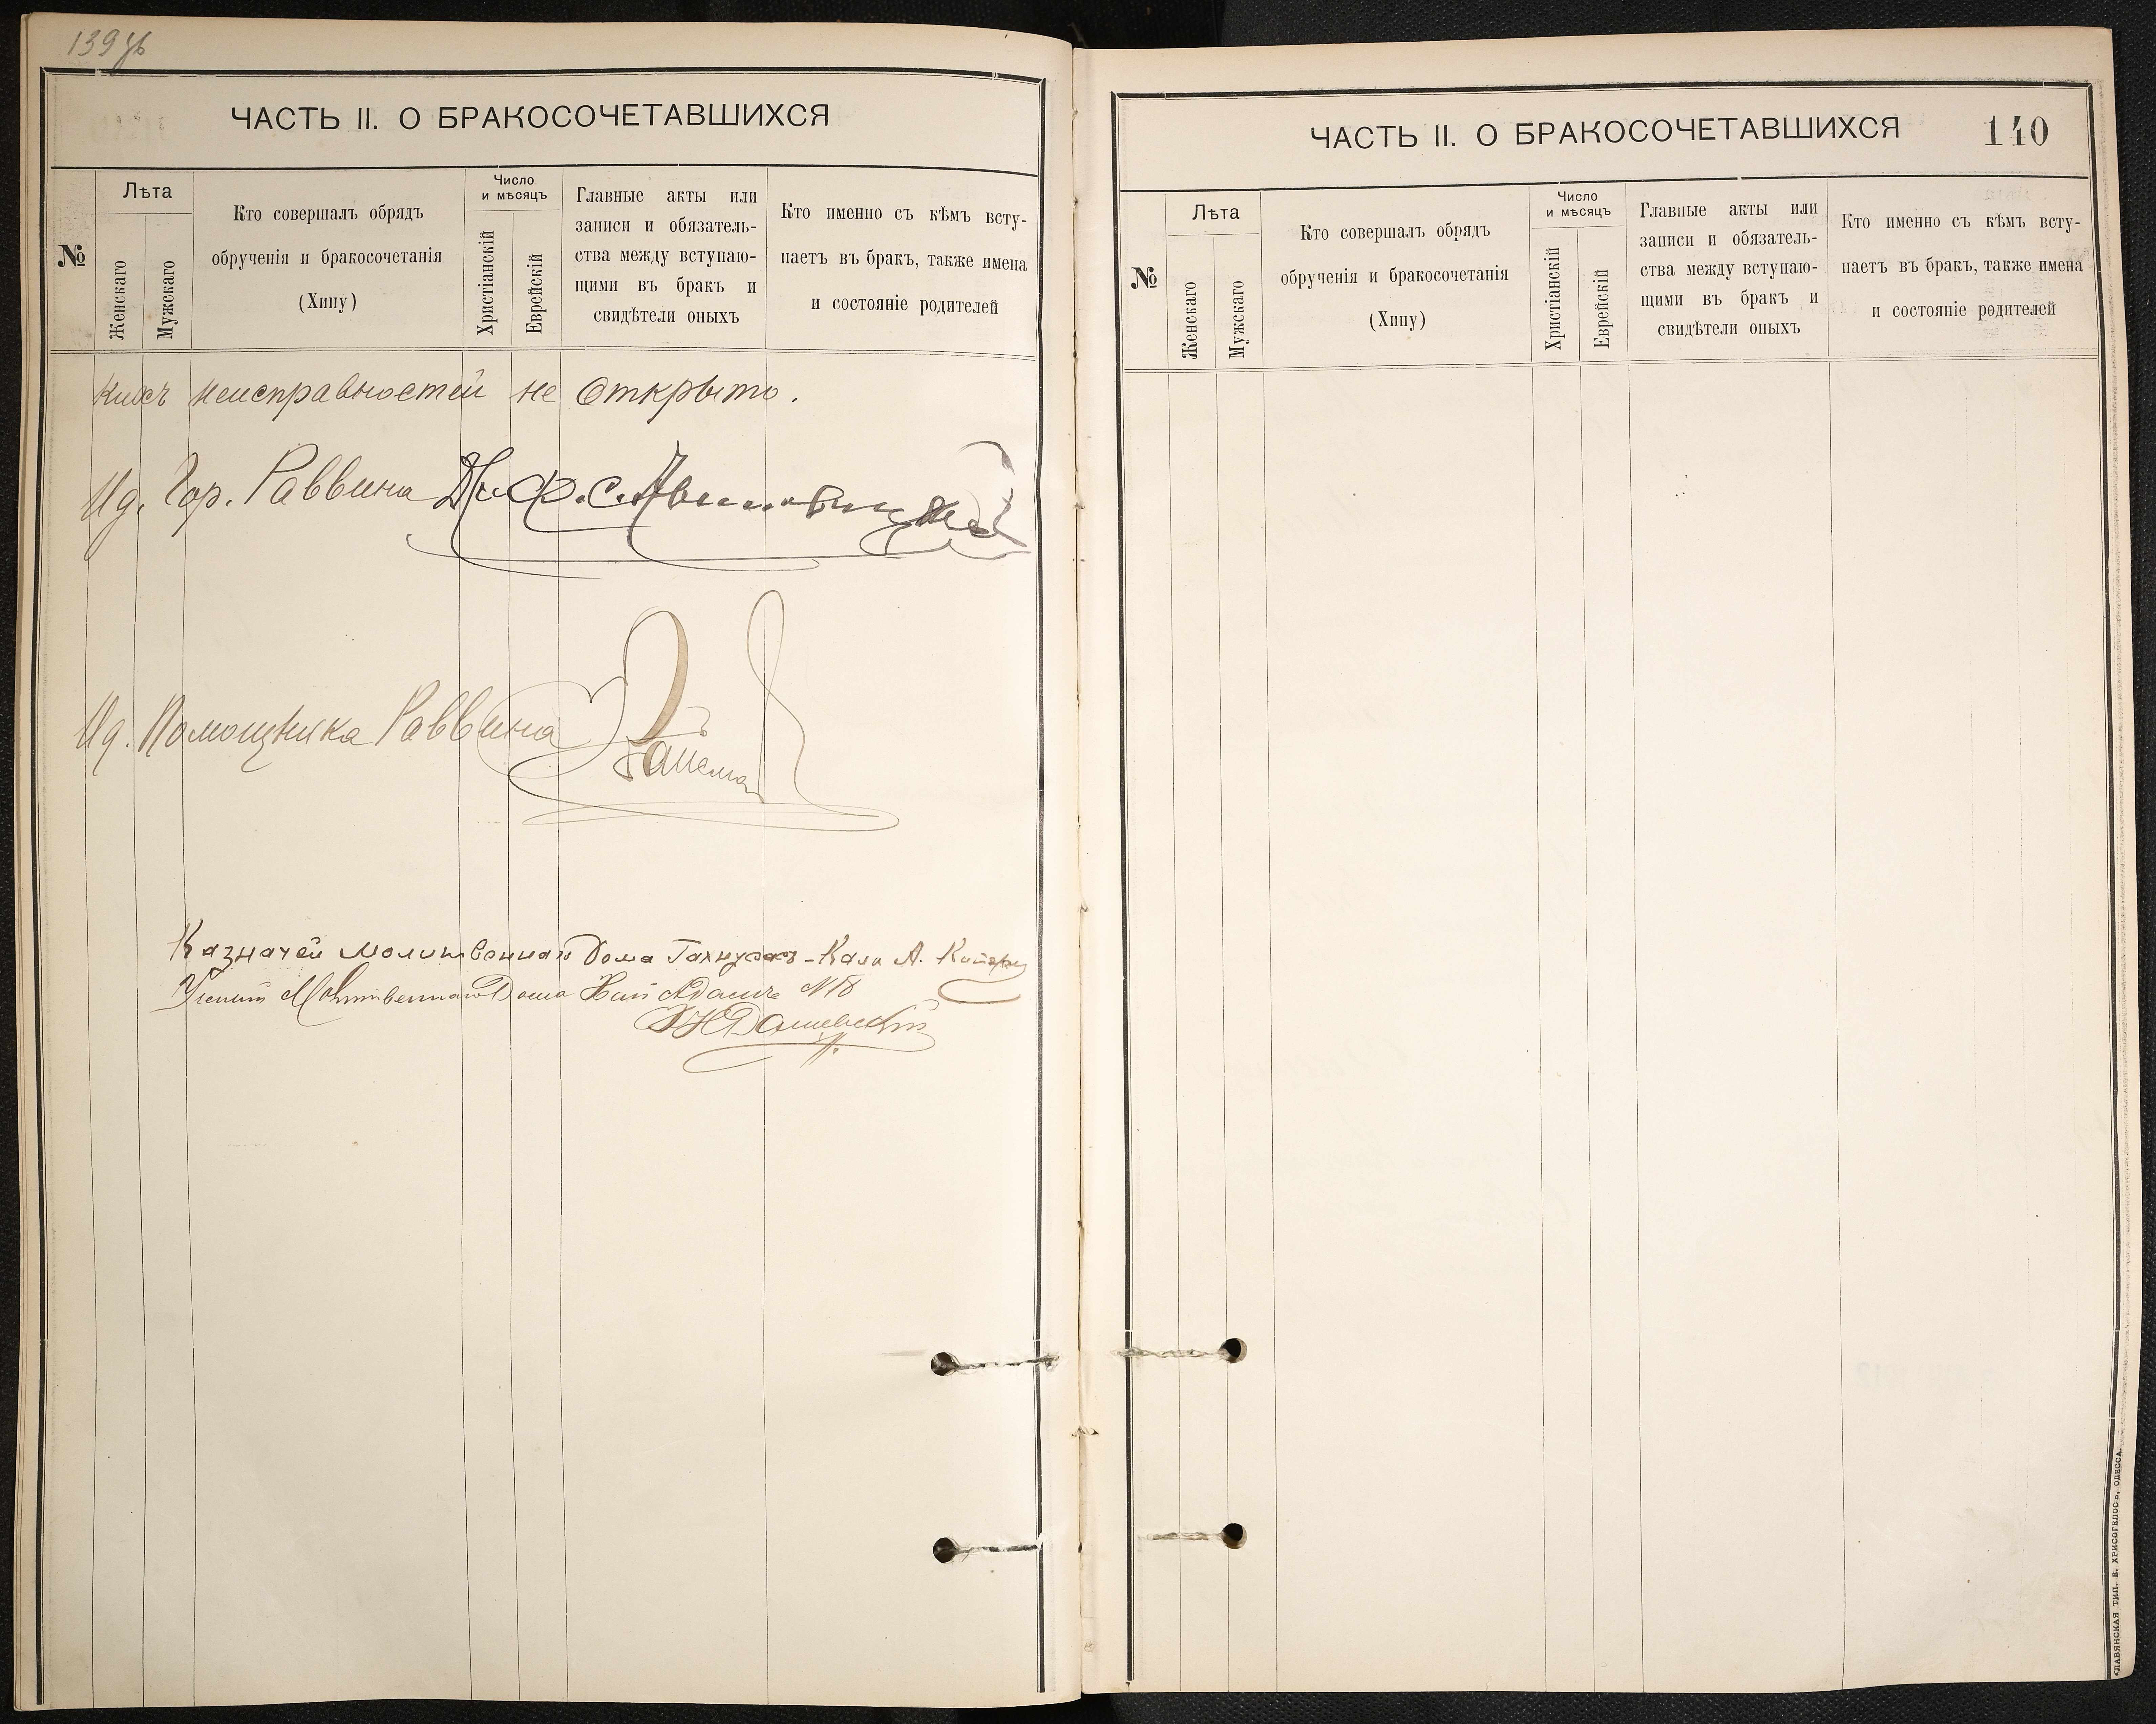 139 об
ЧАСТЬ II. О БРАКОСОЧЕТАВШИХСЯ
№
Лѣта
Женскаго
Мужскаго
Кто совершалъ обрядъ
обрученія и бракосочетанія
(Хипу)
Число
и мѣсяцъ
Христіанскій
Еврейскій
Главные акты или
записи и обязатель-
ства между вступаю-
щими въ бракъ и
свидѣтели оныхъ
Кто именно съ кѣмъ всту-
паетъ въ бракъ, также имена
и состояніе родителей
неисправностей не открыто.
Ид. Гор. Раввина
Ид. Помощника Раввина
Казначей Молитвеннаго Дома А.
Молитвеннаго Дома Хай Адамъ
Дашевскій
ЧАСТЬ II. О БРАКОСОЧЕТАВШИХСЯ
140
№
Лѣта
Женскаго
Мужскаго
Кто совершалъ обрядъ
обрученія и бракосочетанія
(Хипу)
Число
и мѣсяцъ
Христіанскій
Еврейскій
Главные акты или
записи и обязатель-
ства между вступаю-
щими въ бракъ и
свидѣтели оныхъ
Кто именно съ кѣмъ всту-
паетъ въ бракъ, также имена
и состояніе родителей
СЛАВЯНСКАЯ ТИП. Е. ХРИСОГЕЛОСЪ, ОДЕССА.